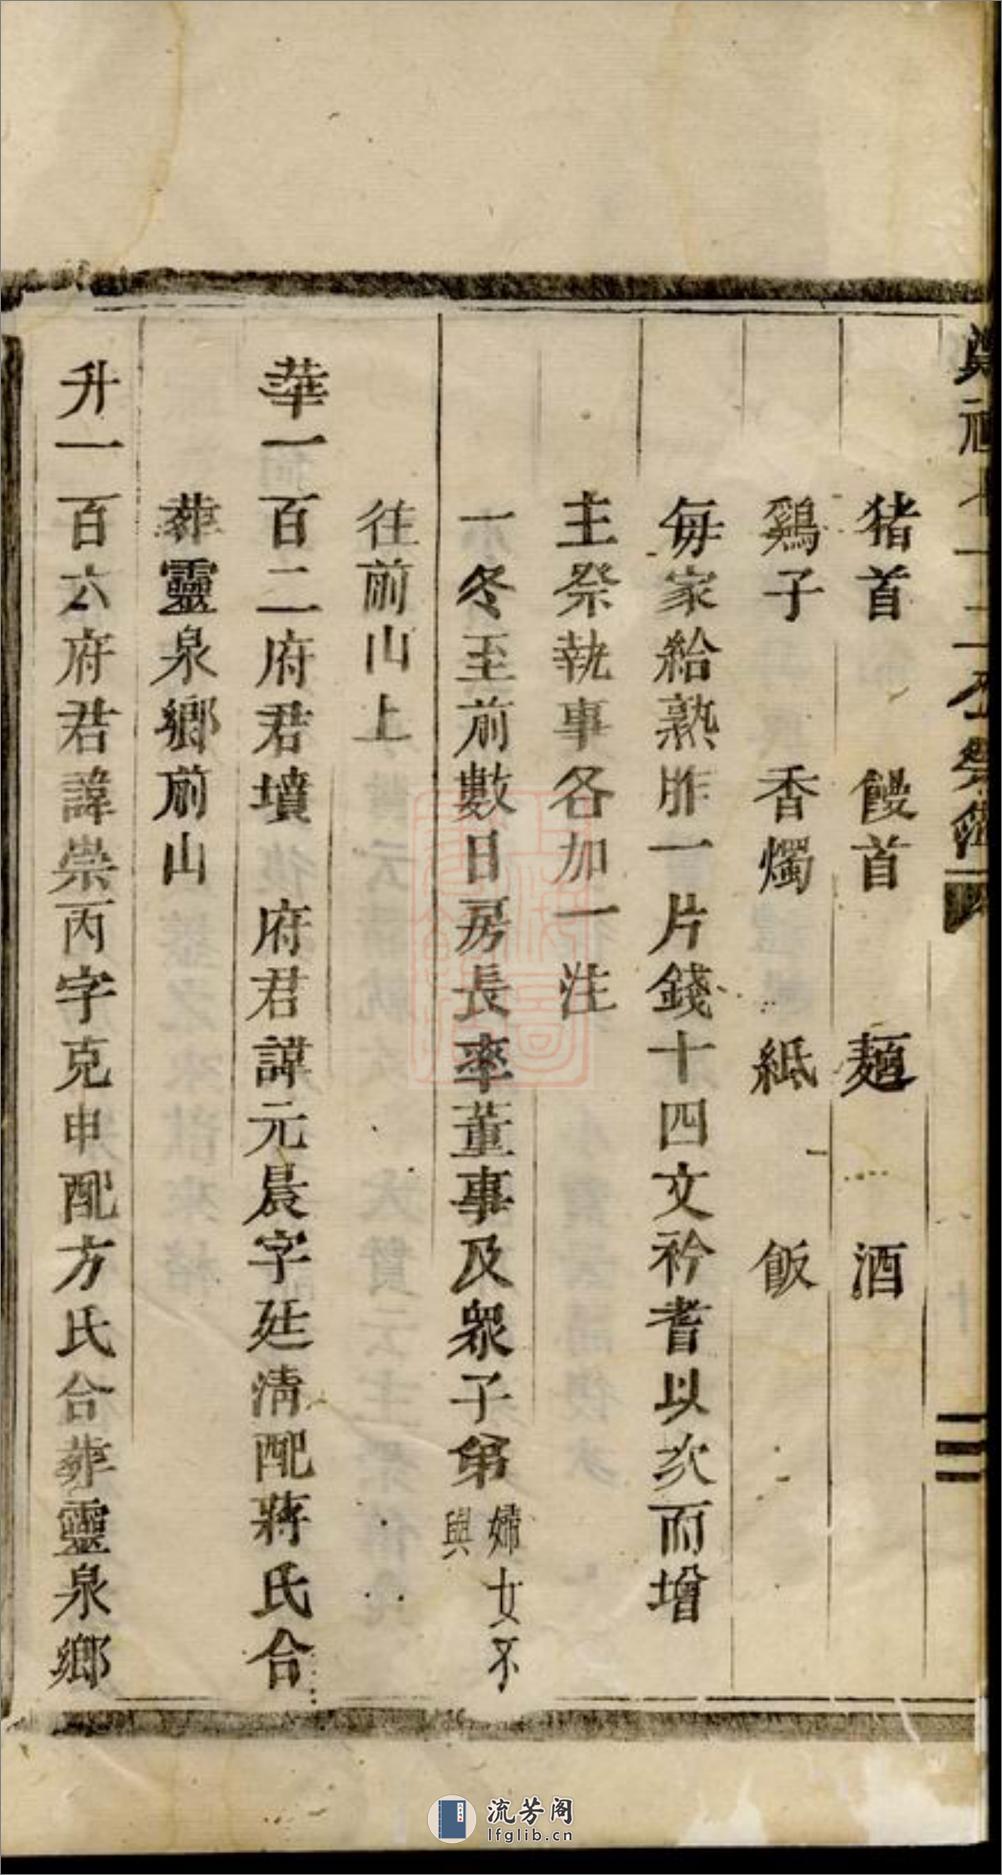 猪首 饅首 麺 酒
鷄子 香燭 紙 飯
每家給熟胙一片錢十四文衿耆以次而增
主祭執事各加一注
一冬至前數日房長率董事及眾子弟婦女不與
往前山上
華一百二府君墳 府君諱元晨字廷淸配蔣氏合
葬靈泉鄉前山
升一百六府君諱崇丙字克申配方氏合葬靈泉鄉
流芳阁
lfglib.cn